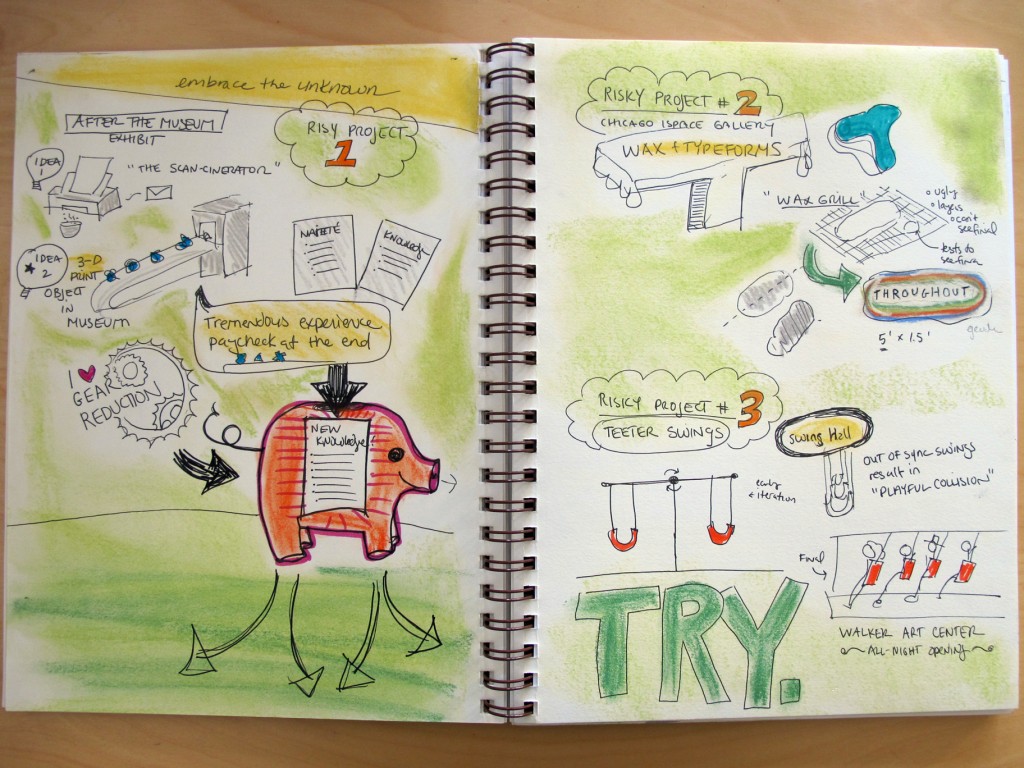 embrace the unknown
AFTER THE MUSEUM
EXHIBIT
RISY PROJECT
1
IDEA
1
"THE SCAN-CINERATOR"
IDEA
2
3-D
PRINT
OBJECT
IN
MUSEUM
NAÏVETÉ
KNOWLEDGE
Tremendous experience
paycheck at the end
I
GEAR
REDUCTION
NEW
KNOWLEDGE!
RISKY PROJECT # 2
CHICAGO ISPACE GALLERY
WAX + TYPEFORMS
"WAX GRILL"
ugly
layers
can't
see final
tests to
see final
THROUGHOUT
5' x 1.5'
RISKY PROJECT # 3
TEETER SWINGS
Swing Hall
OUT OF SYNC SWINGS
result in
"PLAYFUL COLLISION"
early
iteration
Final
TRY.
WALKER ART CENTER
~ ALL-NIGHT OPENING ~